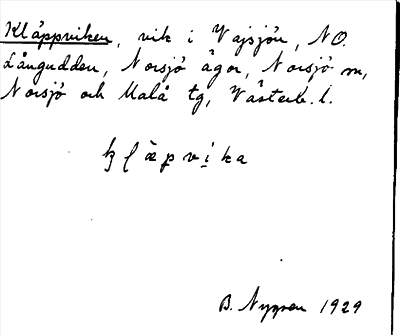 Kläppviken, vik i Vajsjön, NO.
Långudden, Norsjö ägor, Norsjö sn,
Norsjö och Malå tg, Västerb. l.
B. Nygren 1929